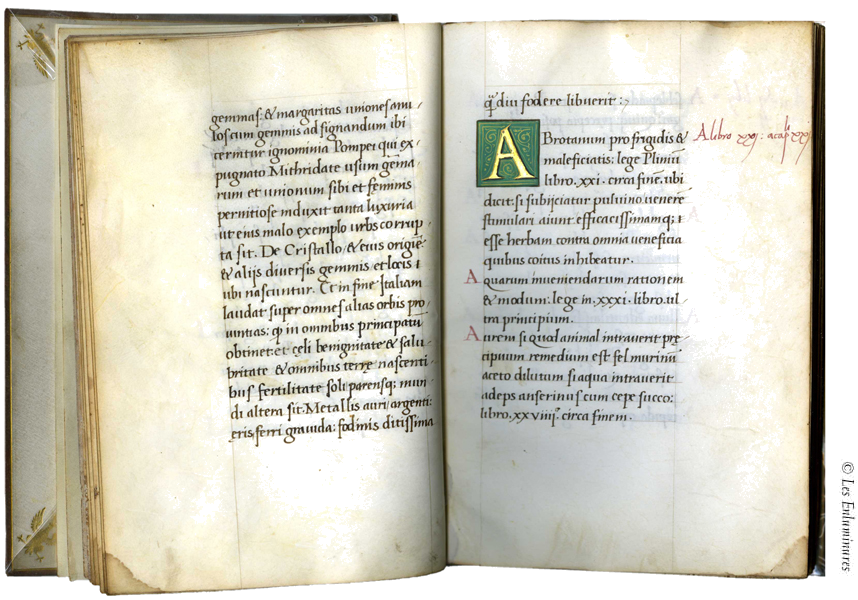 gemmas: & margaritas uniones anu/
loscum gemmis ad signandum ibi
cernitur ignominia Pompei qui ex/
pugnato Mithridate usum gēma/
rum et unionum sibi et feminis
permitiose induxit tanta luxuria
ut eius malo exemplo urbs corrup/
ta sit. De Cristallo & eius origiē
& alijs diversis gemmis et locis
ubi nascuntur. Et in fine Italiam
laudat super omnes alias orbis pro/
vintias: in omnibus principatū
obtinet: et celi benignitate & salu/
britate & omnibus terre nascenti/
bus fertilitate soli parensq; mun/
di altera sit. Metallis auri, argenti:
eris, ferri gravida: fodinis ditissima
diu fodere libuerit:
ABrotanum pro frigidis &
maleficiatis: lege Plinīū
libro. xxi. circa finē. ubi
dicit: si subijciatur pulvino venerē
stimulari aiunt. efficacissimamq;
esse herbam contra omnia veneficia
quibus coitus inhibeatur.
Aquarum inveniendarum rationem
& modum: lege in. xxxi. libro. ul/
tra principium.
Aurem si quod animal intraverit pre/
cipuum remedium est fel murinū
aceto dilutum si aqua intraverit
adeps anserinus cum cepe succo:
libro. xxviiij. circa finem.
A libro xxj: a
© Les Enluminures